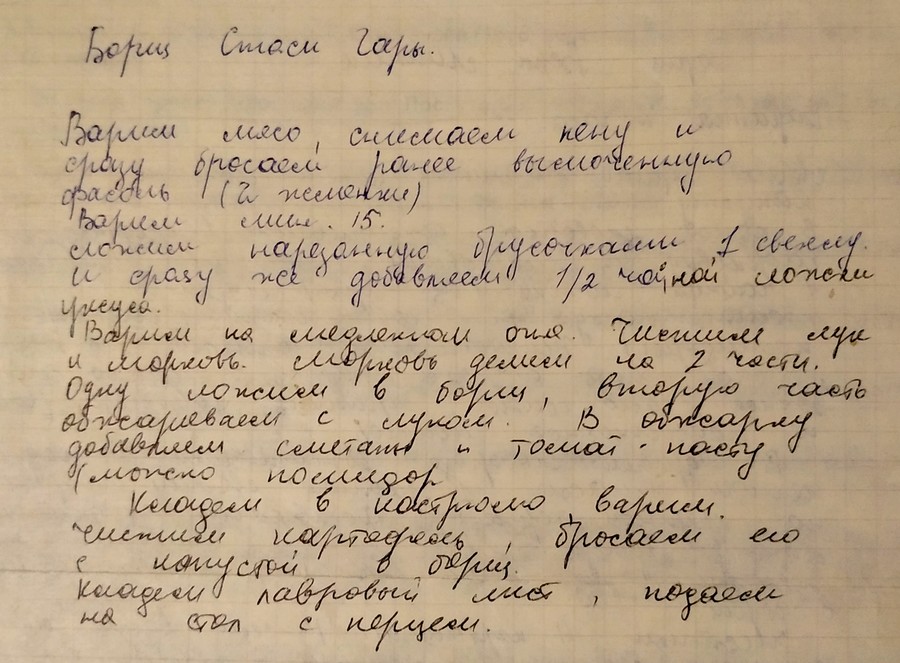 Борщ Стаси Гары.
Варим мясо, снимаем пену и
сразу бросаем ранее вымоченную
фасоль (2 жменьки)
Варим мин. 15.
Ложим нарезанную брусочками 1 свеклу.
И сразу же добавляем 1/2 чайной ложки
уксуса.
Варим на медленном огне. Чистим лук
и морковь. Морковь делим на 2 части.
Одну ложим в борщ, вторую часть
обжариваем с луком. В обжарку
добавляем сметаны и томат-пасту
(можно помидор
Кладем в кастрюлю, варим.
Чистим картофель, бросаем его
с капустой в борщ.
Кладем лавровый лист, подаем
на стол с перцем.